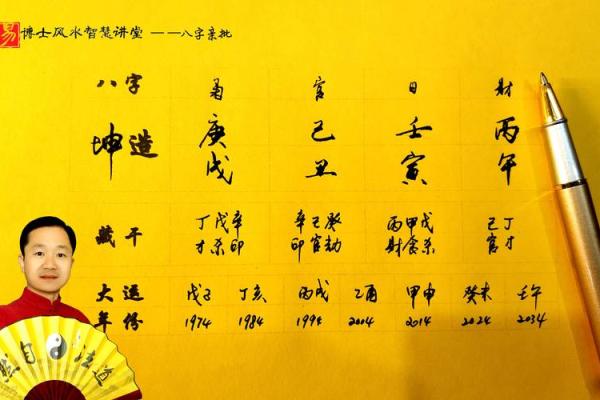 易 博士风水智慧讲堂 ——八字亲批
八字 枭 官 日 财
坤造 庚 己 壬 丙
戌 丑 寅 午
藏干 丁戊辛 辛己癸 丙甲戊 己丁
才杀印 印官劫 财食杀 官才
大运 戊子 丁亥 丙戌 乙酉 甲申 癸未 壬午
年份 1974 1984 1994 2004 2014 2024 2034
自 法道